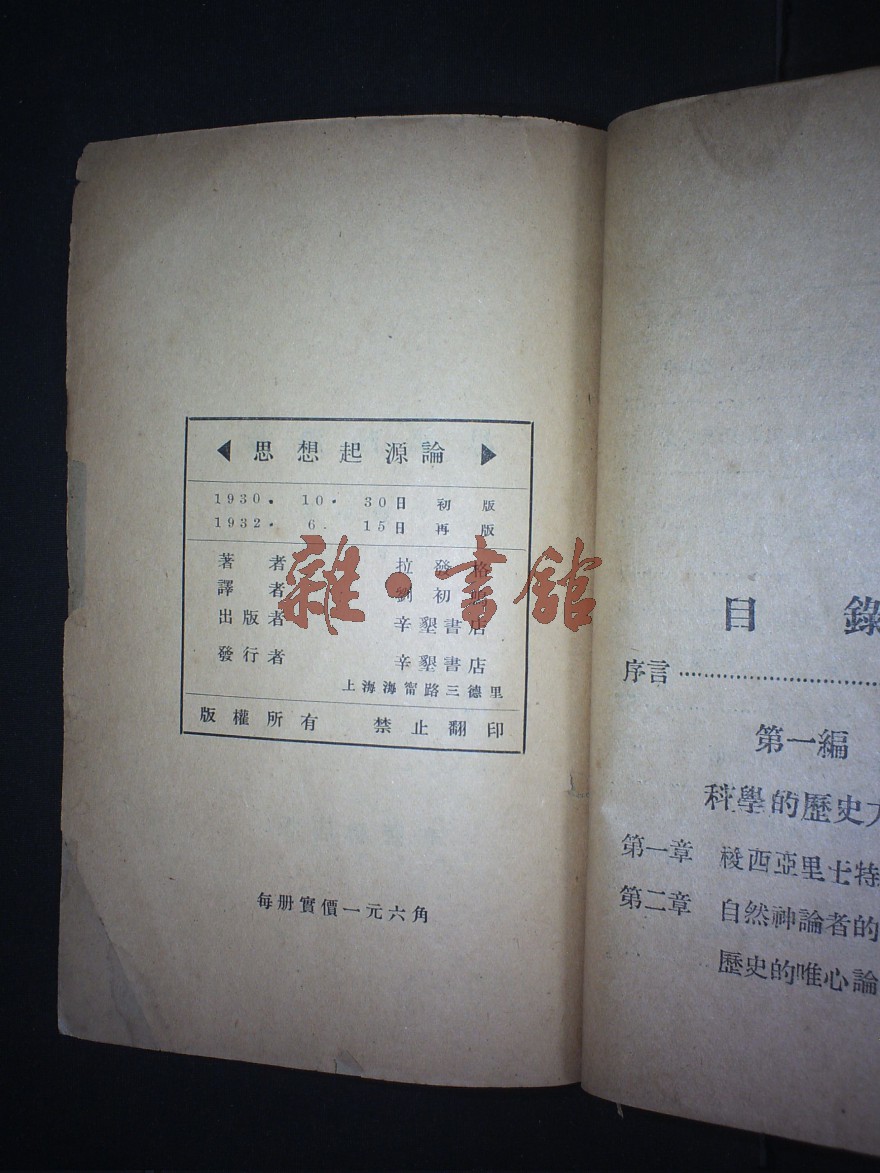 ◀ 思想起源論 ▶
1930. 10. 30日 初版
1932. 6. 15日 再版
著者 拉發格
譯者 劉初鳴
出版者 辛墾書店
發行者 辛墾書店
上海海甯路三德里
版權所有 禁止翻印
每册實價一元六角
雜·書館
目錄
序言
第一編
科學的歷史
第一章 梭西亞里士特
第二章 自然神論者的
歷史的唯心論